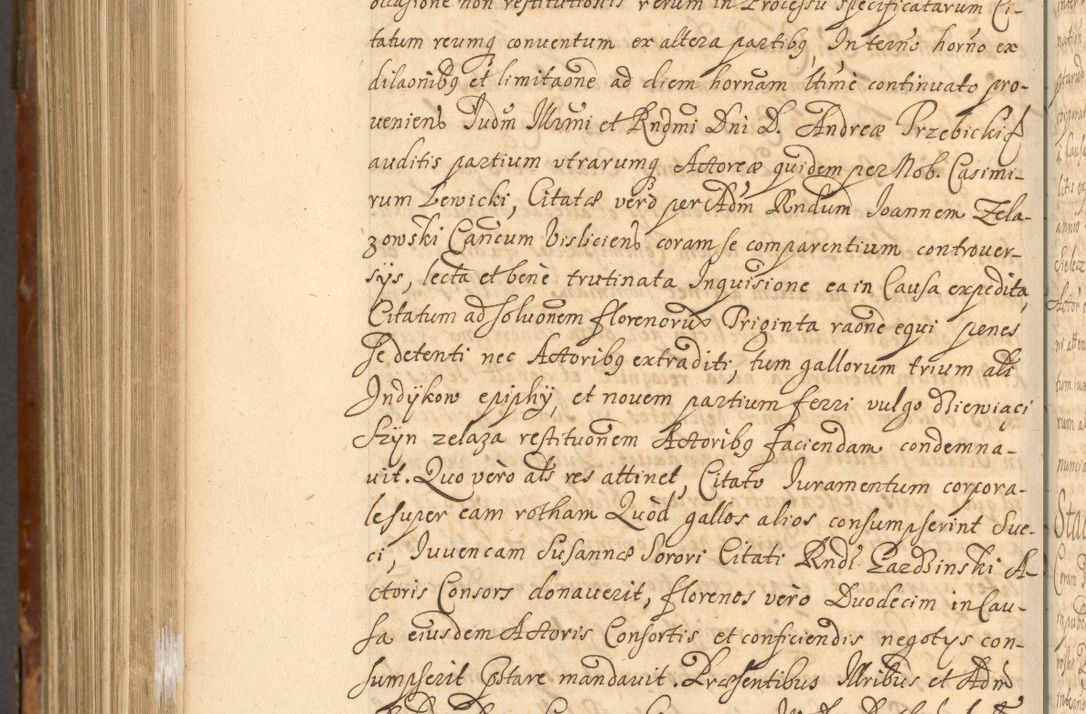 occasione non restitutionis rerum in Processu specificatarum Ci-
tatum reumq conventum ex altera partibq In termo horno ex
dilaonibq et limitaone ad diem hornam ltime continuato pro-
veniens Judm Illrmi et Rndmi Dni D. Andreæ Trzebicki
auditis partium utrarumq Actoreæ quidem per Nob. Casimi-
rum Lewicki, Citatæ verò per Adm Rndum Joannem Zela-
zowski Cancum Visliciens coram se comparentium controver-
sÿs, lecta et benè trutinata Inquisione ea in Causa expedita,
Citatum ad solvonem florenorum Triginta raone equi penes
se detenti nec Actoribq extraditi, tum gallorum trium als
Jndÿkow epiphÿ, et novem partium ferri vulgo dziewiąci
Szÿn zelaza restituonem Actoribq faciendam condemna-
vit. Quo verò als res attinet, Citato Juramentum corpora-
le super eam rotham Quòd gallos alios consumpserint Sue-
ci, Juvencam Susannæ Sorori Citati Rndi Gardzinski A-
ctoris Consors donaverit, florenos verò Duodecim in Cau-
sa eiusdem Actoris Consortis et conficiendis negotÿs con-
sumpserit pstare mandavit. Præsentibus Illribus et Adm